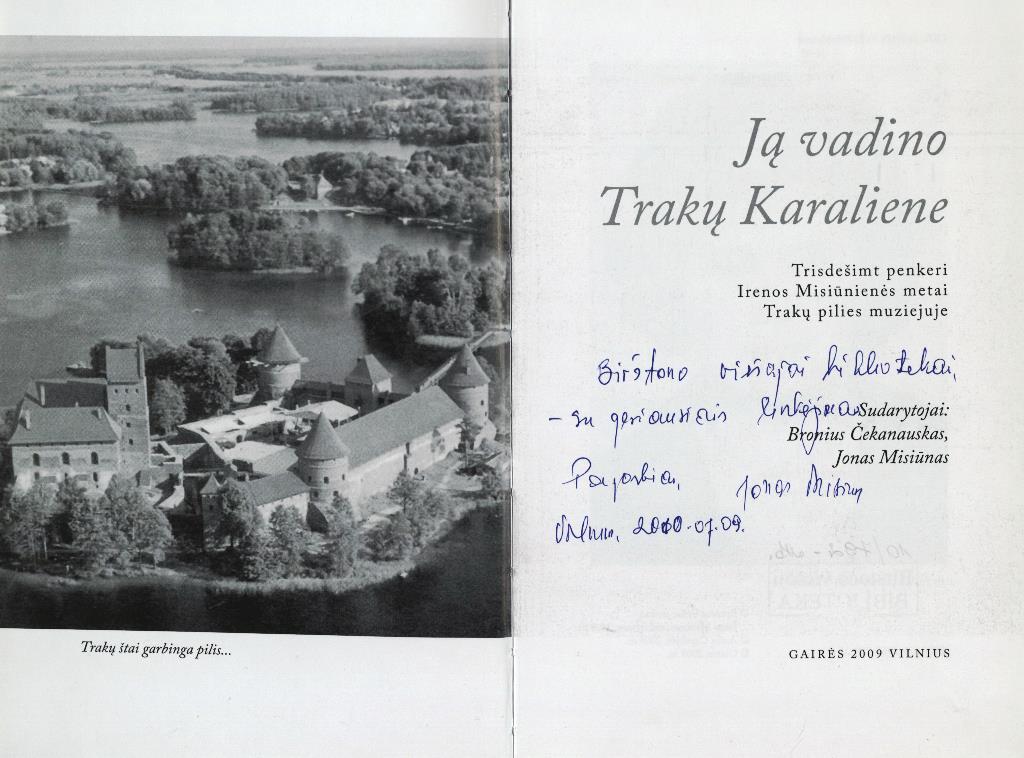 Trakų štai garbinga pilis...
Ją vadino
Trakų Karaliene
Trisdešimt penkeri
Irenos Misiūnienės metai
Trakų pilies muziejuje
Birštono viešajai bibliotekai,
– su geriausiais linkėjimais
Sudarytojai:
Bronius Čekanauskas,
Jonas Misiūnas
Pagarbiai, Jonas Misiūnas
Vilnius, 2010-07-09.
BIBLIOTEKA
GAIRĖS 2009 VILNIUS